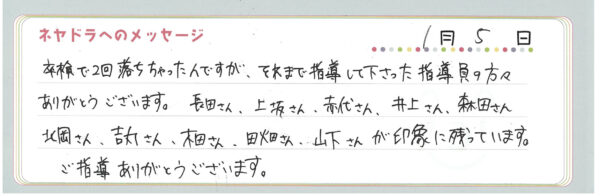 ネヤドラへのメッセージ
1月5日
卒検で2回落ちちゃったんですが、それまで指導して下さった指導員の方々
ありがとうございます。長田さん、上坂さん、赤代さん、井上さん、森田さん
北岡さん、吉村さん、本田さん、田畑さん、山下さんが印象に残っています。
ご指導ありがとうございます。